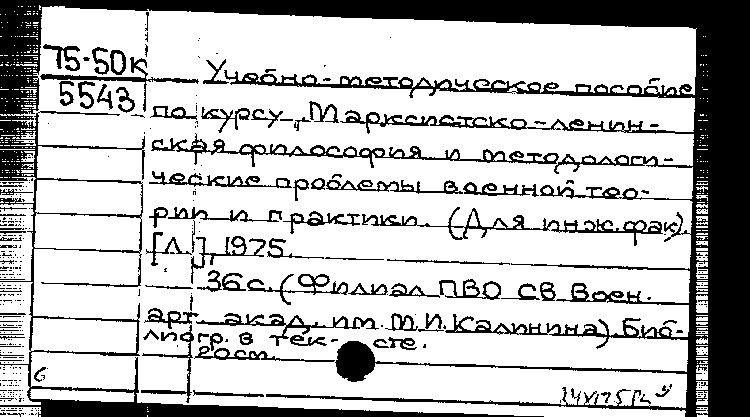 75-50к
5543
Учебно-методическое пособие
по курсу "Марксистско-ленин-
ская философия и методологи-
ческие проблемы военной тео-
рии и практики. (Для инж. фак).
[Л.], 1975.
36 с. (Филиал ПВО СВ Воен.
арт. акад. им. М.И. Калинина). Биб-
лиогр. в тек- сте.
20 см.
6